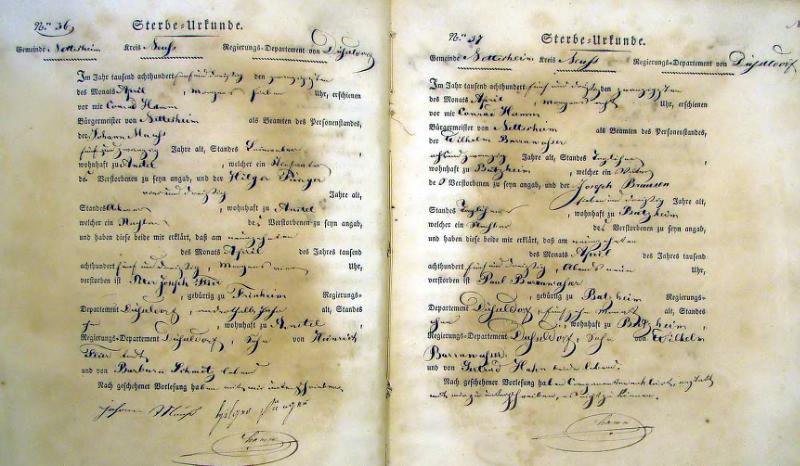 Nro. 36
Sterbe-Urkunde.
Gemeinde Nettesheim Kreis Neuss Regierungs-Departement von Düsseldorf
Im Jahr tausend achthundert fünf und dreißig den zwanzigsten
des Monats April, morgens sieben Uhr, erschienen
vor mir Conrad Hamm
Bürgermeister von Nettesheim als Beamten des Personenstandes,
der Johann
fünf zwanzig Jahre alt, Standes
wohnhaft zu Anstel, welcher ein Nachbar
des Verstorbenen zu seyn angab, und der Hilger
und dreißig Jahre alt,
Standes Ackerer, wohnhaft zu Anstel
welcher ein Nachbar des Verstorbenen zu seyn angab,
und haben diese beide mir erklärt, daß am neunzehnten
des Monats April des Jahres tausend
achthundert fünf und dreißig, Morgens Uhr,
verstorben ist Peter Joseph
, gebürtig zu Frixheim Regierungs-
Departement Düsseldorf, alt, Standes
, wohnhaft zu Anstel,
Regierungs-Departement Düsseldorf, Sohn von Heinrich
und von Barbara Schmitz
Nach geschehener Vorlesung haben mit mir unterschrieben
Johann
Hilger
Hamm
Nro. 37
Sterbe-Urkunde.
Gemeinde Nettesheim Kreis Neuss Regierungs-Departement von Düsseldorf
Im Jahr tausend achthundert fünf und dreißig den zwanzigsten
des Monats April, morgens Uhr, erschienen
vor mir Conrad Hamm
Bürgermeister von Nettesheim als Beamten des Personenstandes,
der Wilhelm Barrawasser
zwanzig Jahre alt, Standes Taglöhner,
wohnhaft zu Butzheim, welcher ein Vater
des Verstorbenen zu seyn angab, und der Joseph
sieben und dreißig Jahre alt,
Standes Taglöhner, wohnhaft zu Butzheim
welcher ein Nachbar des Verstorbenen zu seyn angab,
und haben diese beide mir erklärt, daß am neunzehnten
des Monats April des Jahres tausend
achthundert fünf und dreißig, Abends neun Uhr,
verstorben ist Paul Barrawasser
, gebürtig zu Butzheim Regierungs-
Departement Düsseldorf, Monat alt, Standes
, wohnhaft zu Butzheim,
Regierungs-Departement Düsseldorf, Sohn von Wilhelm
Barrawasser
und von Gertrud Hahn beide lebend.
Nach geschehener Vorlesung haben Comparenten erklärt,
unterschreiben, nicht zu können.
Hamm